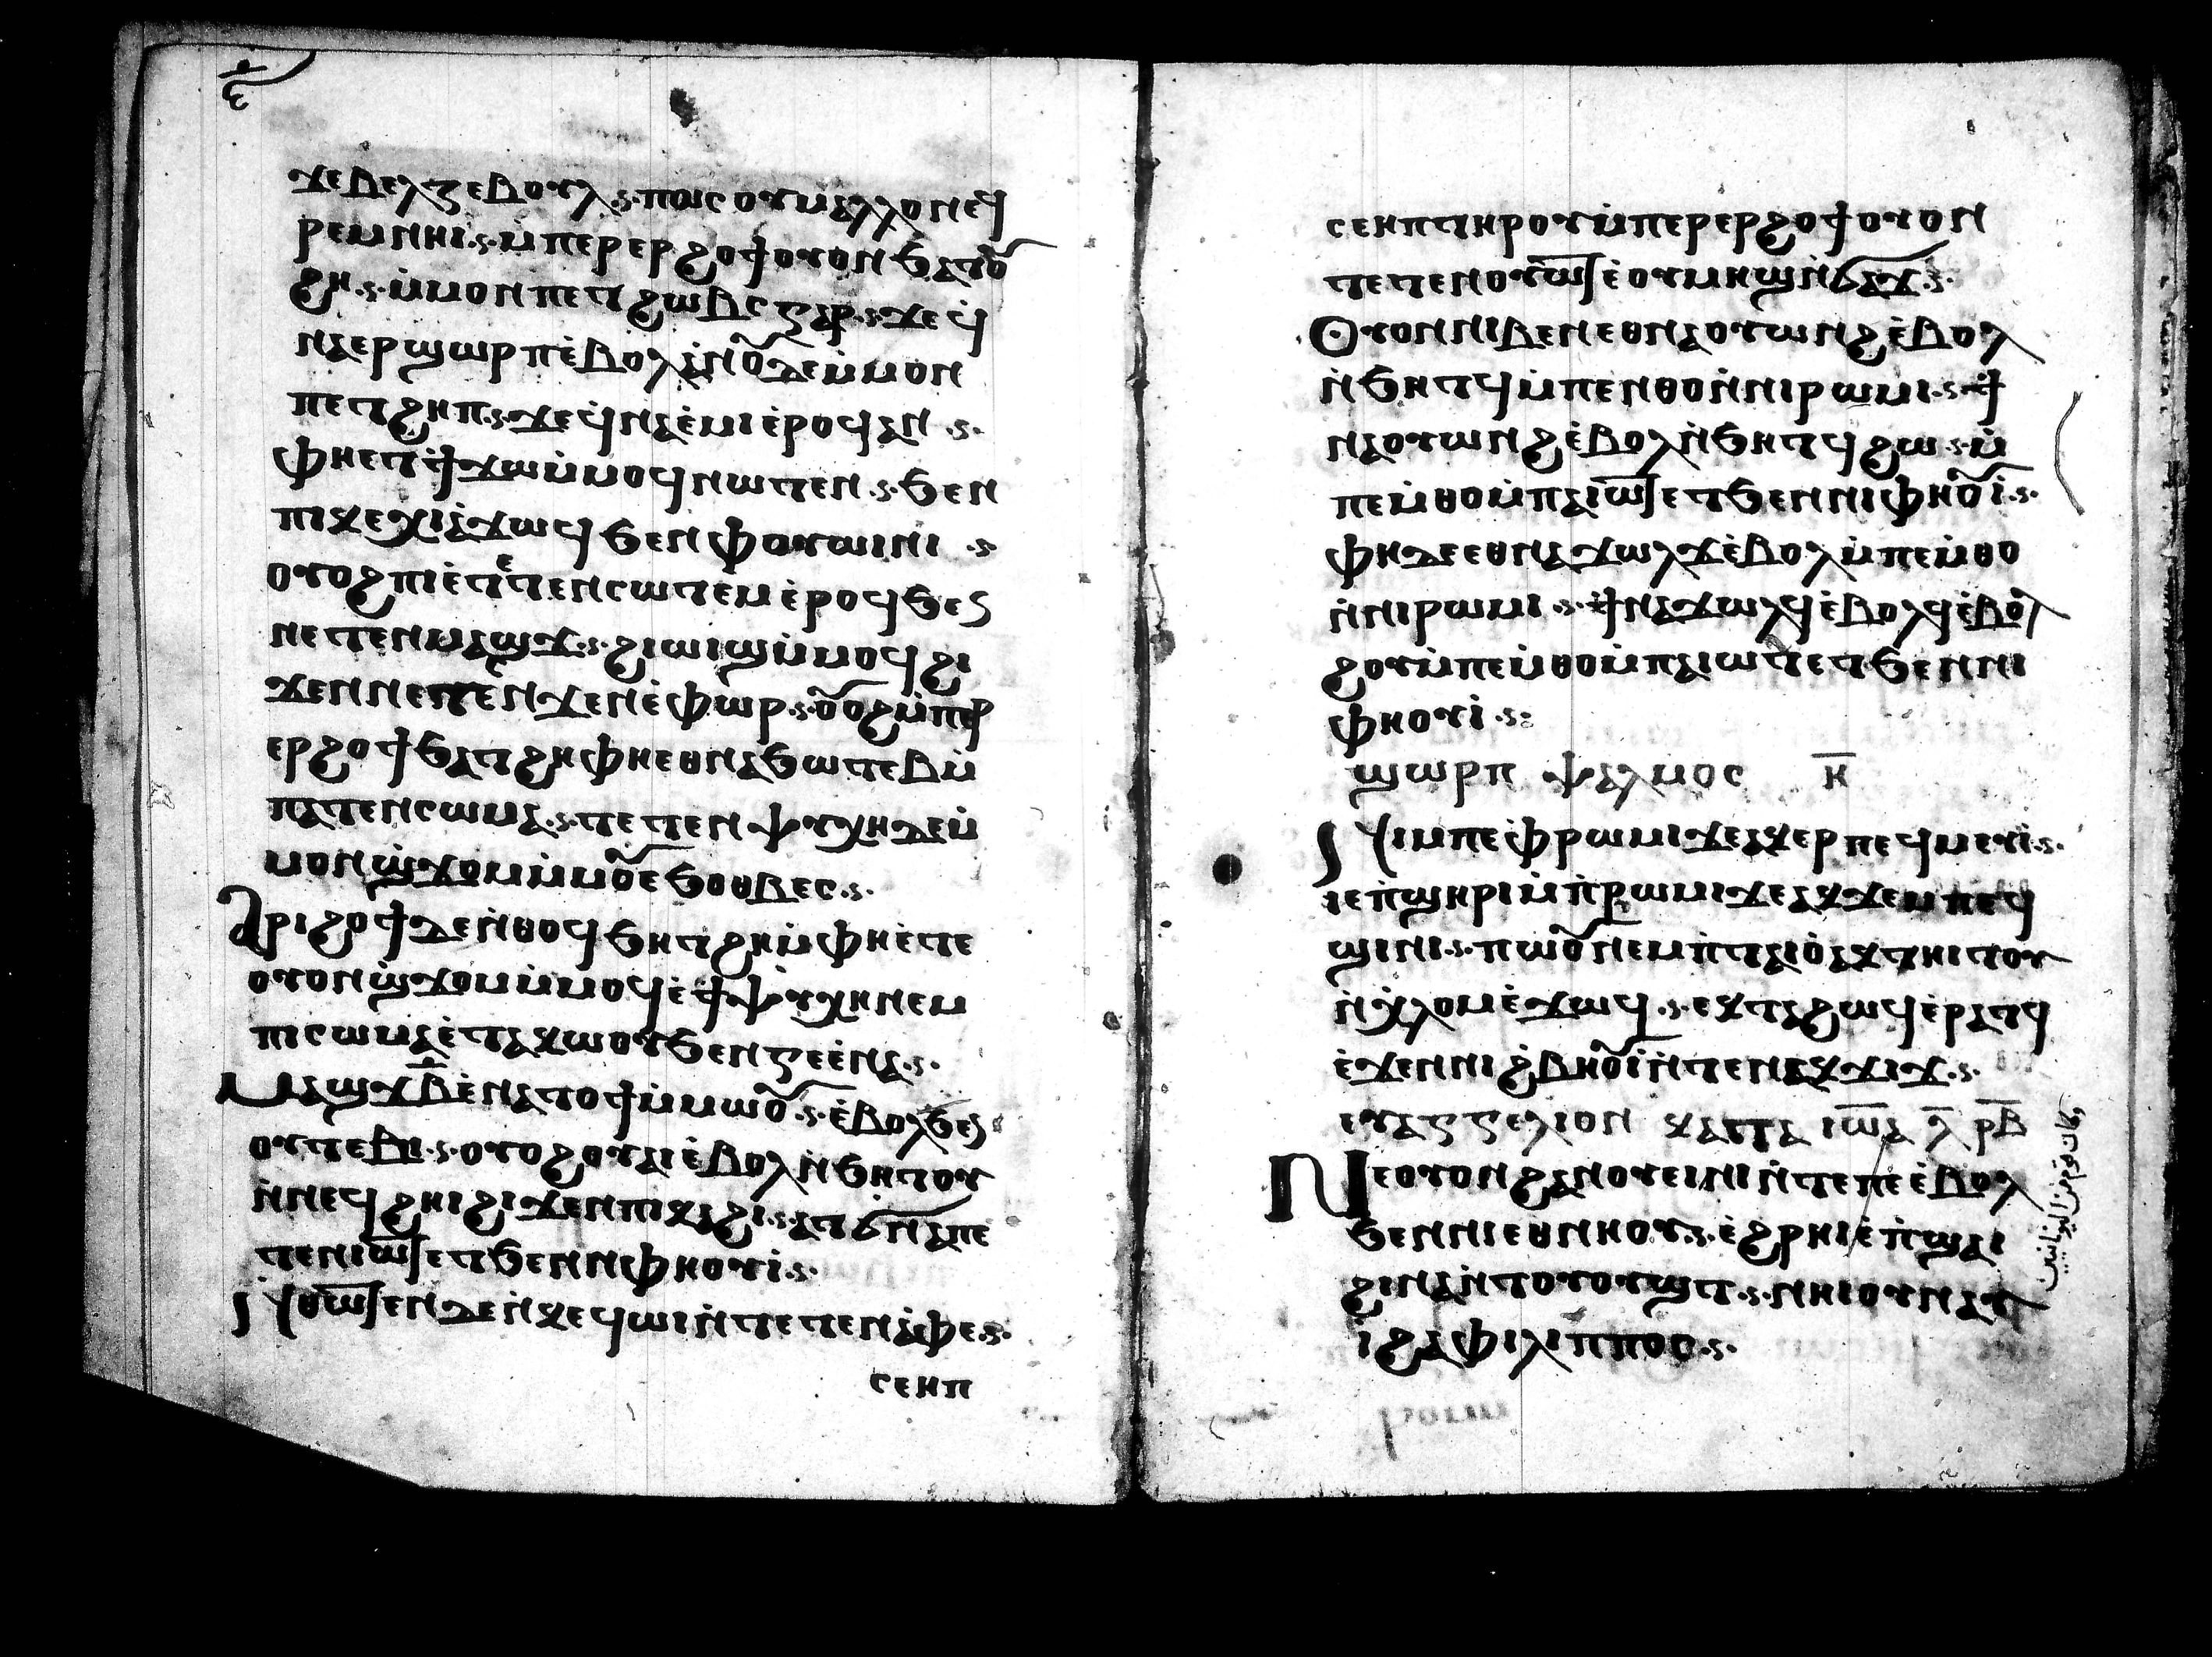 ϫⲉⲃⲉⲗⲍⲉⲃⲟⲩⲗ ·ⲥ· ⲡⲱⲥ ⲟⲩⲙⲁⲗⲗⲟⲛ ⲉϥ
ⲣⲉⲙⲛⲏⲓ ·ⲥ· ⲙ̇ⲡⲉⲣⲉⲣϩⲟϯ ⲟⲩⲟⲛ ϧⲁⲧⲟⲩ
ϩⲏ ·ⲥ· ⲙ̇ⲙⲟⲛ ⲡⲉⲧϩⲱⲃⲥ ⲅⲁⲣ ·ⲥ· ϫⲉ ϥ
ⲛⲁⲉⲣϣⲱⲣⲡ ⲉ̇ⲃⲟⲗ ⲁⲛ ⲟⲩⲇⲉ ⲙ̇ⲙⲟⲛ
ⲡⲉⲧϩⲏⲡ ·ⲥ· ϫⲉ ϥ̇ⲛⲁⲉ̇ⲙⲓ ⲉ̇ⲣⲟϥ ⲁⲛ ·ⲥ·
ⲫⲏⲉϯϫⲱ ⲙ̇ⲙⲟϥ ⲛⲱⲧⲉⲛ ·ⲥ· ϧⲉⲛ
ⲡⲓⲭⲉⲭⲓ ⲁ̇ϫⲱϥ ϧⲉⲛ ⲫⲟⲩⲱⲓⲛⲓ ·ⲥ·
ⲟⲩⲟϩ ⲡⲓⲉ̇ⲧⲉⲧⲉⲛⲥⲱⲧⲉⲙ ⲉ̇ⲣⲟϥ ϧⲉⲛ
ⲛⲉⲧⲉⲛⲙⲁϣϫ ·ⲥ· ϩⲓⲱⲓϣ ⲙ̇ⲙⲟϥ ϩⲓ
ϫⲉⲛ ⲛⲉⲧⲉⲛϫⲉⲛⲉ̇ⲫⲱⲣ ·ⲥ· ⲟⲩⲟϩ ⲙ̇ⲡⲉⲣ
ⲉⲣϩⲟϯ ϧⲁⲧϩⲏ ⲫⲏⲉⲑⲛⲁϧⲱⲧⲉⲃ ⲙ̇
ⲡⲁⲧⲉⲛⲥⲱⲙⲁ ·ⲥ· ⲧⲉⲧⲉⲛⲯⲩⲭⲏ ⲇⲉ ⲙ̇
ⲙⲟⲛ ϣ̇ϫⲟⲙ ⲙ̇ⲙⲟⲩ ⲉϧⲟⲑⲃⲉⲥ ·ⲥ·
Ⲁⲣⲓϩⲟϯ ⲇⲉ ⲛ̇ⲑⲟϥ ϧⲏⲧϩⲏ ⲙ̇ⲫⲏⲉ̇ⲧⲉ
ⲟⲩⲟⲛ ϣ̇ϫⲟⲙ ⲙ̇ⲙⲟϥ ⲉϯⲯⲩⲭⲏ ⲛⲉⲙ
ⲡⲓⲥⲱⲙⲁ ⲉ̇ⲧⲁⲭⲱⲟⲩ ϧⲉⲛ ⲅⲉⲉ̇ⲛⲁ ·ⲥ·
Ⲙⲁϣϫ ⲃ̅ ⲉ̇ⲛⲁⲧⲟϯ ⲙ̇ⲙⲱⲟⲩ ·ⲥ· ⲉ̇ⲃⲟⲗϧⲉⲛ
ⲟⲩⲧⲉⲃⲓ ·ⲥ· ⲟⲩⲟϩ ⲟⲩⲁⲓ ⲉ̇ⲃⲟⲗ ⲛ̇ϧⲏⲧⲟⲩ
ⲛ̇ⲛⲉϥϩⲏⲓ ϩⲓϫⲉⲛ ⲡⲓⲕⲁϩⲓ ·ⲥ· ⲁⲧϭⲛⲁ ⲡⲉ
ⲧⲉⲛⲓⲱⲧ ⲉⲧϧⲉⲛ ⲛⲓⲫⲏⲟⲩⲓ̇ ·ⲥ·
Ⲛ̇ⲑⲱⲧⲉⲛ ⲇⲉ ⲛ̇ⲕⲉϥⲱⲓ ⲛ̇ⲧⲉⲧⲉⲛⲁ̇ⲫⲉ ·ⲥ·
ⲥⲉⲏⲡ
ⲥⲉⲏⲡ ⲧⲏⲣⲟⲩ ⲙ̇ⲡⲉⲣⲉⲣϩⲟϯ ⲟⲩⲟⲛ
ⲧⲉⲧⲉⲛⲟⲩⲱⲧ ⲉ̇ⲟⲩⲙⲏϣ ⲛ̇ϭⲁϫ ·ⲥ·
Ⲟⲩⲟⲛ ⲛⲓⲃⲉⲛ ⲉⲑⲛⲁⲟⲩⲱⲛϩ ⲉ̇ⲃⲟⲗ
ⲛ̇ϧⲏⲧϥ ⲙ̇ⲡⲉⲛⲑⲟ ⲛ̇ⲛⲓⲣⲱⲙⲓ ·ⲥ· ϯ
ⲛⲁⲟⲩⲱⲛϩ ⲉ̇ⲃⲟⲗ ⲛ̇ϧⲏⲧϥ ϩⲱ ·ⲥ· ⲙ̇
ⲡⲉⲙ̇ⲑⲟ ⲙ̇ⲡⲁⲓⲱⲧ ⲉⲧϧⲉⲛ ⲛⲓⲫⲏⲟⲩⲓ̇ ·ⲥ·
ⲫⲏ ⲇⲉ ⲉⲑⲛⲁϫⲱⲗϫ ⲉ̇ⲃⲟⲗ ⲙ̇ⲡⲉⲙ̇ⲑⲟ
ⲛ̇ⲛⲓⲣⲱⲙⲓ ·ⲥ· ϯⲛⲁϫⲱⲗϥ ⲉ̇ⲃⲟⲗϥ ⲉ̇ⲃⲟⲗ
ϩⲟⲩ ⲙ̇ⲡⲉⲙ̇ⲑⲟ ⲙ̇ⲡⲁⲓⲱⲧ ⲉⲧϧⲉⲛ ⲛⲓ
ⲫⲏⲟⲩⲓ̇ ·ⲥ·
ϣⲱⲣⲡ ⲯⲁⲗⲙⲟⲥ ⲏ̅
Ⲛⲓⲙ ⲡⲉ ⲫⲣⲱⲙⲓ ϫⲉ ⲁⲕⲉⲣⲡⲉϥⲙⲉⲩⲓ̇ ·ⲥ·
ⲓⲉ ⲡ̇ϣⲏⲣⲓ ⲙ̇ⲡ̇ⲣⲱⲙⲓ ϫⲉ ⲁⲕϫⲉⲙⲡⲉϥ
ϣⲓⲛⲓ ·ⲥ· ⲡⲱⲟⲩ ⲛⲉⲙ ⲡ̇ⲧⲁⲓⲟ̇ ⲁⲕⲧⲏⲓⲧⲟⲩ
ⲛ̇ⲭ̇ⲗⲟⲙ ⲉ̇ϫⲱϥ ·ⲥ· ⲉⲕⲧⲁϩⲱϥ ⲉ̇ⲣⲁⲧϥ
ⲉ̇ϫⲉⲛ ⲛⲓϩ̇ⲃⲏⲟⲩⲓ̇ ⲛ̇ⲧⲉ ⲛⲉⲕϫⲓϫ ·ⲥ·
ⲉⲩⲁⲅⲅⲉⲗⲓⲟⲛ ⲕⲁⲧⲧⲁ ⲓⲱ̅ⲁ ⲗ̅ ⲣⲃ̅
Ⲛⲉ ⲟⲩⲟⲛ ϩⲁⲛⲟⲩⲉⲓⲛⲓⲛ̇ ⲧⲉ ⲡⲉ ⲉ̇ⲃⲟⲗ
ϧⲉⲛ ⲛⲓⲉⲑⲛⲏⲟⲩ ·ⲥ· ⲉ̇ϩ̇ⲣⲏⲓ ⲉ̇ⲡ̇ϣⲁⲓ
ϩⲓⲛⲁ ⲛ̇ⲧⲟⲩⲟⲩⲱϣⲧ ·ⲥ· ⲛⲏⲓ ⲟⲩⲛ ⲁⲩ
ⲓ̇ ϩⲁ ⲫⲓⲗⲓⲡⲡⲟⲥ ·ⲥ·
وكان قوم من اليونانيين